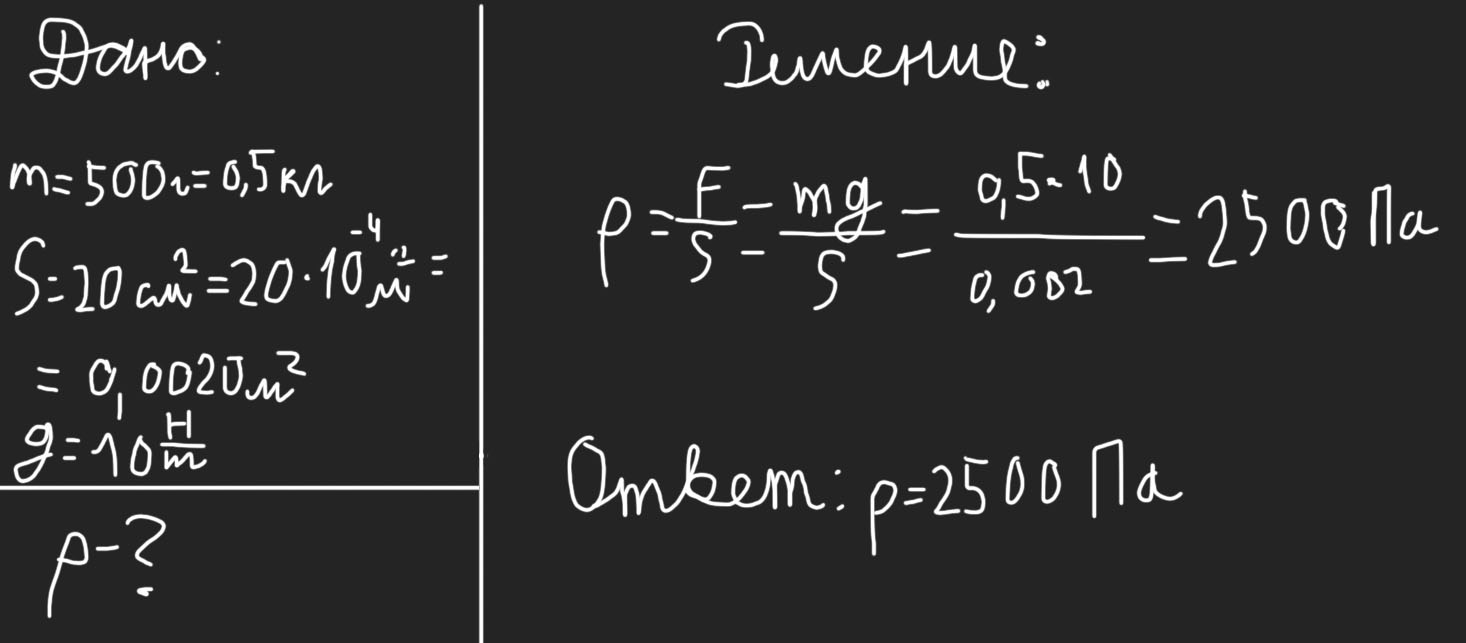 Дано:
m=500г=0,5кг
S=20см²=20·10⁻⁴м²=
=0,0020м²
g=10 Н/m
p-?
Решение:
p=F/S=mg/S=0,5·10/0,002=2500Па
Ответ: p=2500 Па